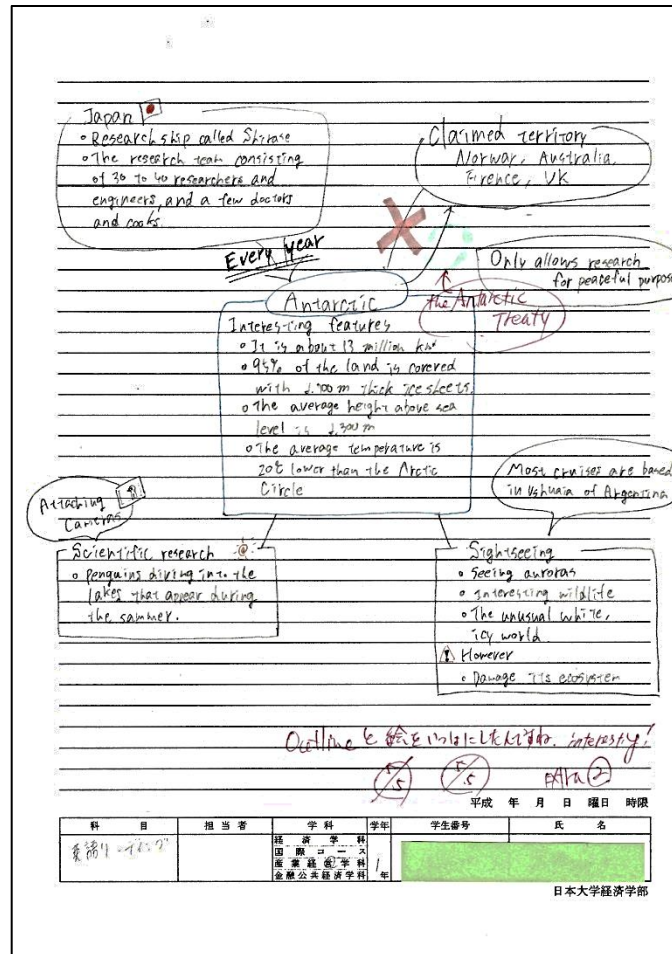 Japan
• Research ship called Shirase
• The research team consisting
of 30 to 40 researchers and
engineers, and a few doctors
and cooks.
Claimed territory
Norway, Australia,
Firence, UK
Every year
Only allows research
for peaceful purpose
the Antarctic
Treaty
Antarctic
Interesting features
• It is about 13 million km²
• 95% of the land is covered
with thick ice sheets.
• The average height above sea
level is
• The average temperature is
20℃ lower than the Arctic
Circle
Attaching
Cameras
Most cruises are based
in Ushuaia of Argentina
Scientific research
• Penguins diving into the
lakes that appear during
the sammer.
Sightseeing
• Seeing auroras
• Interesting wildlife
• The unusual white,
icy world.
However
• Damage its ecosystem
Outlineと絵をいっしょにしたんですね. interesty!
5/5 5/5 extra ②
平成 年 月 日 曜日 時限
科 目 担 当 者 学 科 学年 学生番号 氏 名
英語リーディング
経 済 学 科
国 際 コ ー ス
産 業 経 営 学 科
金融公共経済学科
1
年
日本大学経済学部